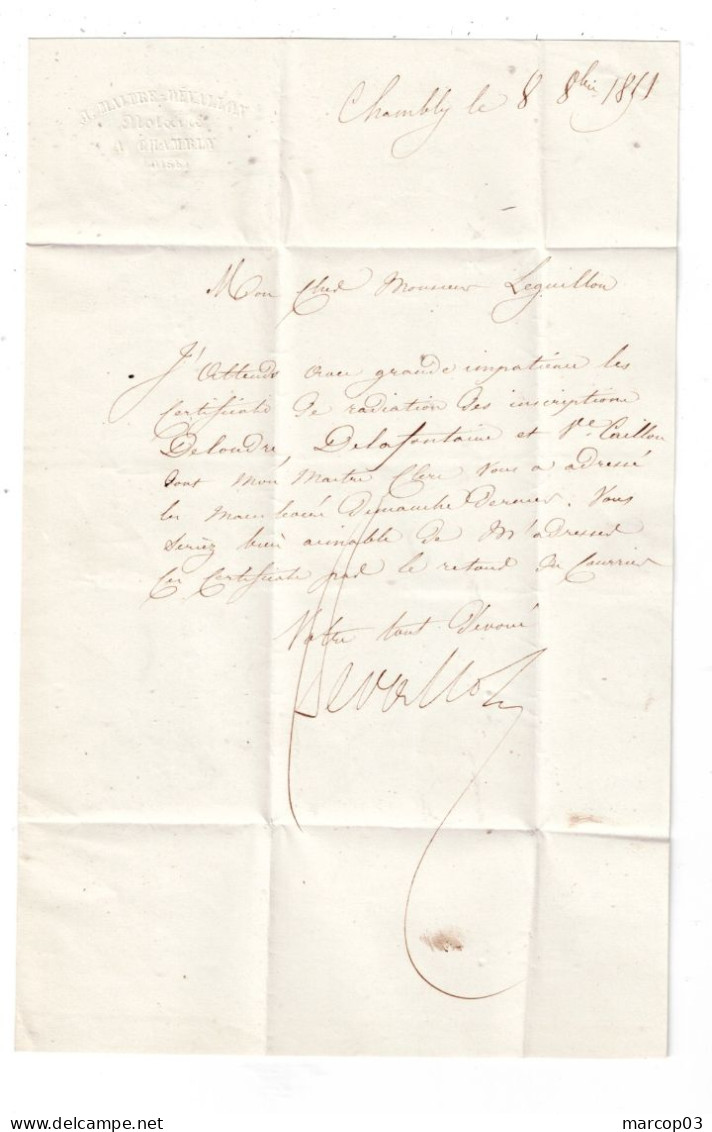 MAITRE-DÉVALLON
Notaire
A CHAMBLY
(Oise)
Chambly le 8 8bre 1851
Mon Cher Monsieur Leguillon
J'Attends avec grande impatience les
Certificats de radiation des inscriptions
Deloudre, Delafontaine et Ve Caillou
dont Mon Maitre Clerc Vous a adressé
les Dimanche Dernier. Vous
Seriez bien aimable de M'adresser
Ces Certificats par le retour du Courrier
Votre tout Dévoué
Devallon
marcop03